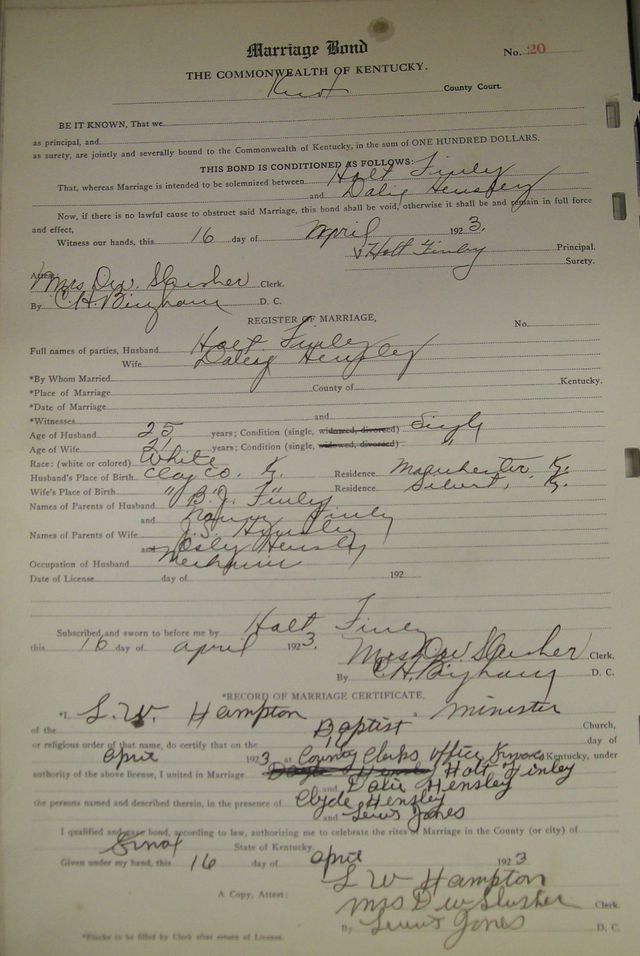 Marriage Bond
No. 20
THE COMMONWEALTH OF KENTUCKY.
Knox County Court.
BE IT KNOWN, That we
as principal, and
as surety, are jointly and severally bound to the Commonwealth of Kentucky, in the sum of ONE HUNDRED DOLLARS.
THIS BOND IS CONDITIONED AS FOLLOWS:
That, whereas Marriage is intended to be solemnized between Holt Finley
and Hensley
Now, if there is no lawful cause to obstruct said Marriage, this bond shall be void, otherwise it shall be and remain in full force
and effect,
Witness our hands, this 16 day of April 1923.
Holt Finley Principal.
Surety.
Attest:
Mrs. D.W. Slusher Clerk.
By C.H. Bingham D. C.
REGISTER OF MARRIAGE,
No.
Full names of parties, Husband Holt Finley
Wife Hensley
*By Whom Married
*Place of Marriage County of Kentucky.
*Date of Marriage
*Witnesses and
Age of Husband 25 years; Condition (single, widowed, divorced) Single
Age of Wife 21 years; Condition (single, widowed, divorced) "
Race: (white or colored) White
Husband's Place of Birth Clay Co. Ky. Residence Manchester Ky.
Wife's Place of Birth " " Residence Sibert, Ky.
Names of Parents of Husband B.J. Finley
and Finley
Names of Parents of Wife J.S. Hensley
and Hensley
Occupation of Husband Mechanic
Date of License day of 192
Subscribed and sworn to before me by Holt Finley
this 16 day of April 1923.
Mrs. D.W. Slusher Clerk.
By C.H. Bingham D. C.
*RECORD OF MARRIAGE CERTIFICATE.
*I, L.W. Hampton a minister
of the Baptist Church,
or religious order of that name, do certify that on the 16 day of
April 1923 at County Clerks office Knox Co Kentucky, under
authority of the above license, I united in Marriage Holt Finley
and Dalie Hensley
the persons named and described therein, in the presence of Clyde Hensley
and Lewis Jones
I qualified and gave bond, according to law, authorizing me to celebrate the rites of Marriage in the County (or city) of
Knox State of Kentucky
Given under my hand, this 16 day of April 1923
L W Hampton
A Copy, Attest: Mrs D W Slusher Clerk.
By Lewis Jones D. C.
*Blanks to be filled by Clerk after return of License.